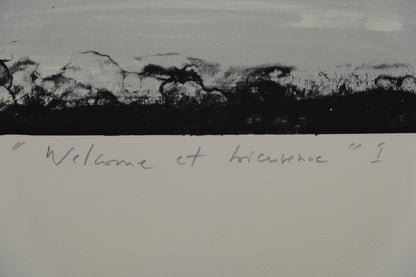 " Welcome et bienvenue " I